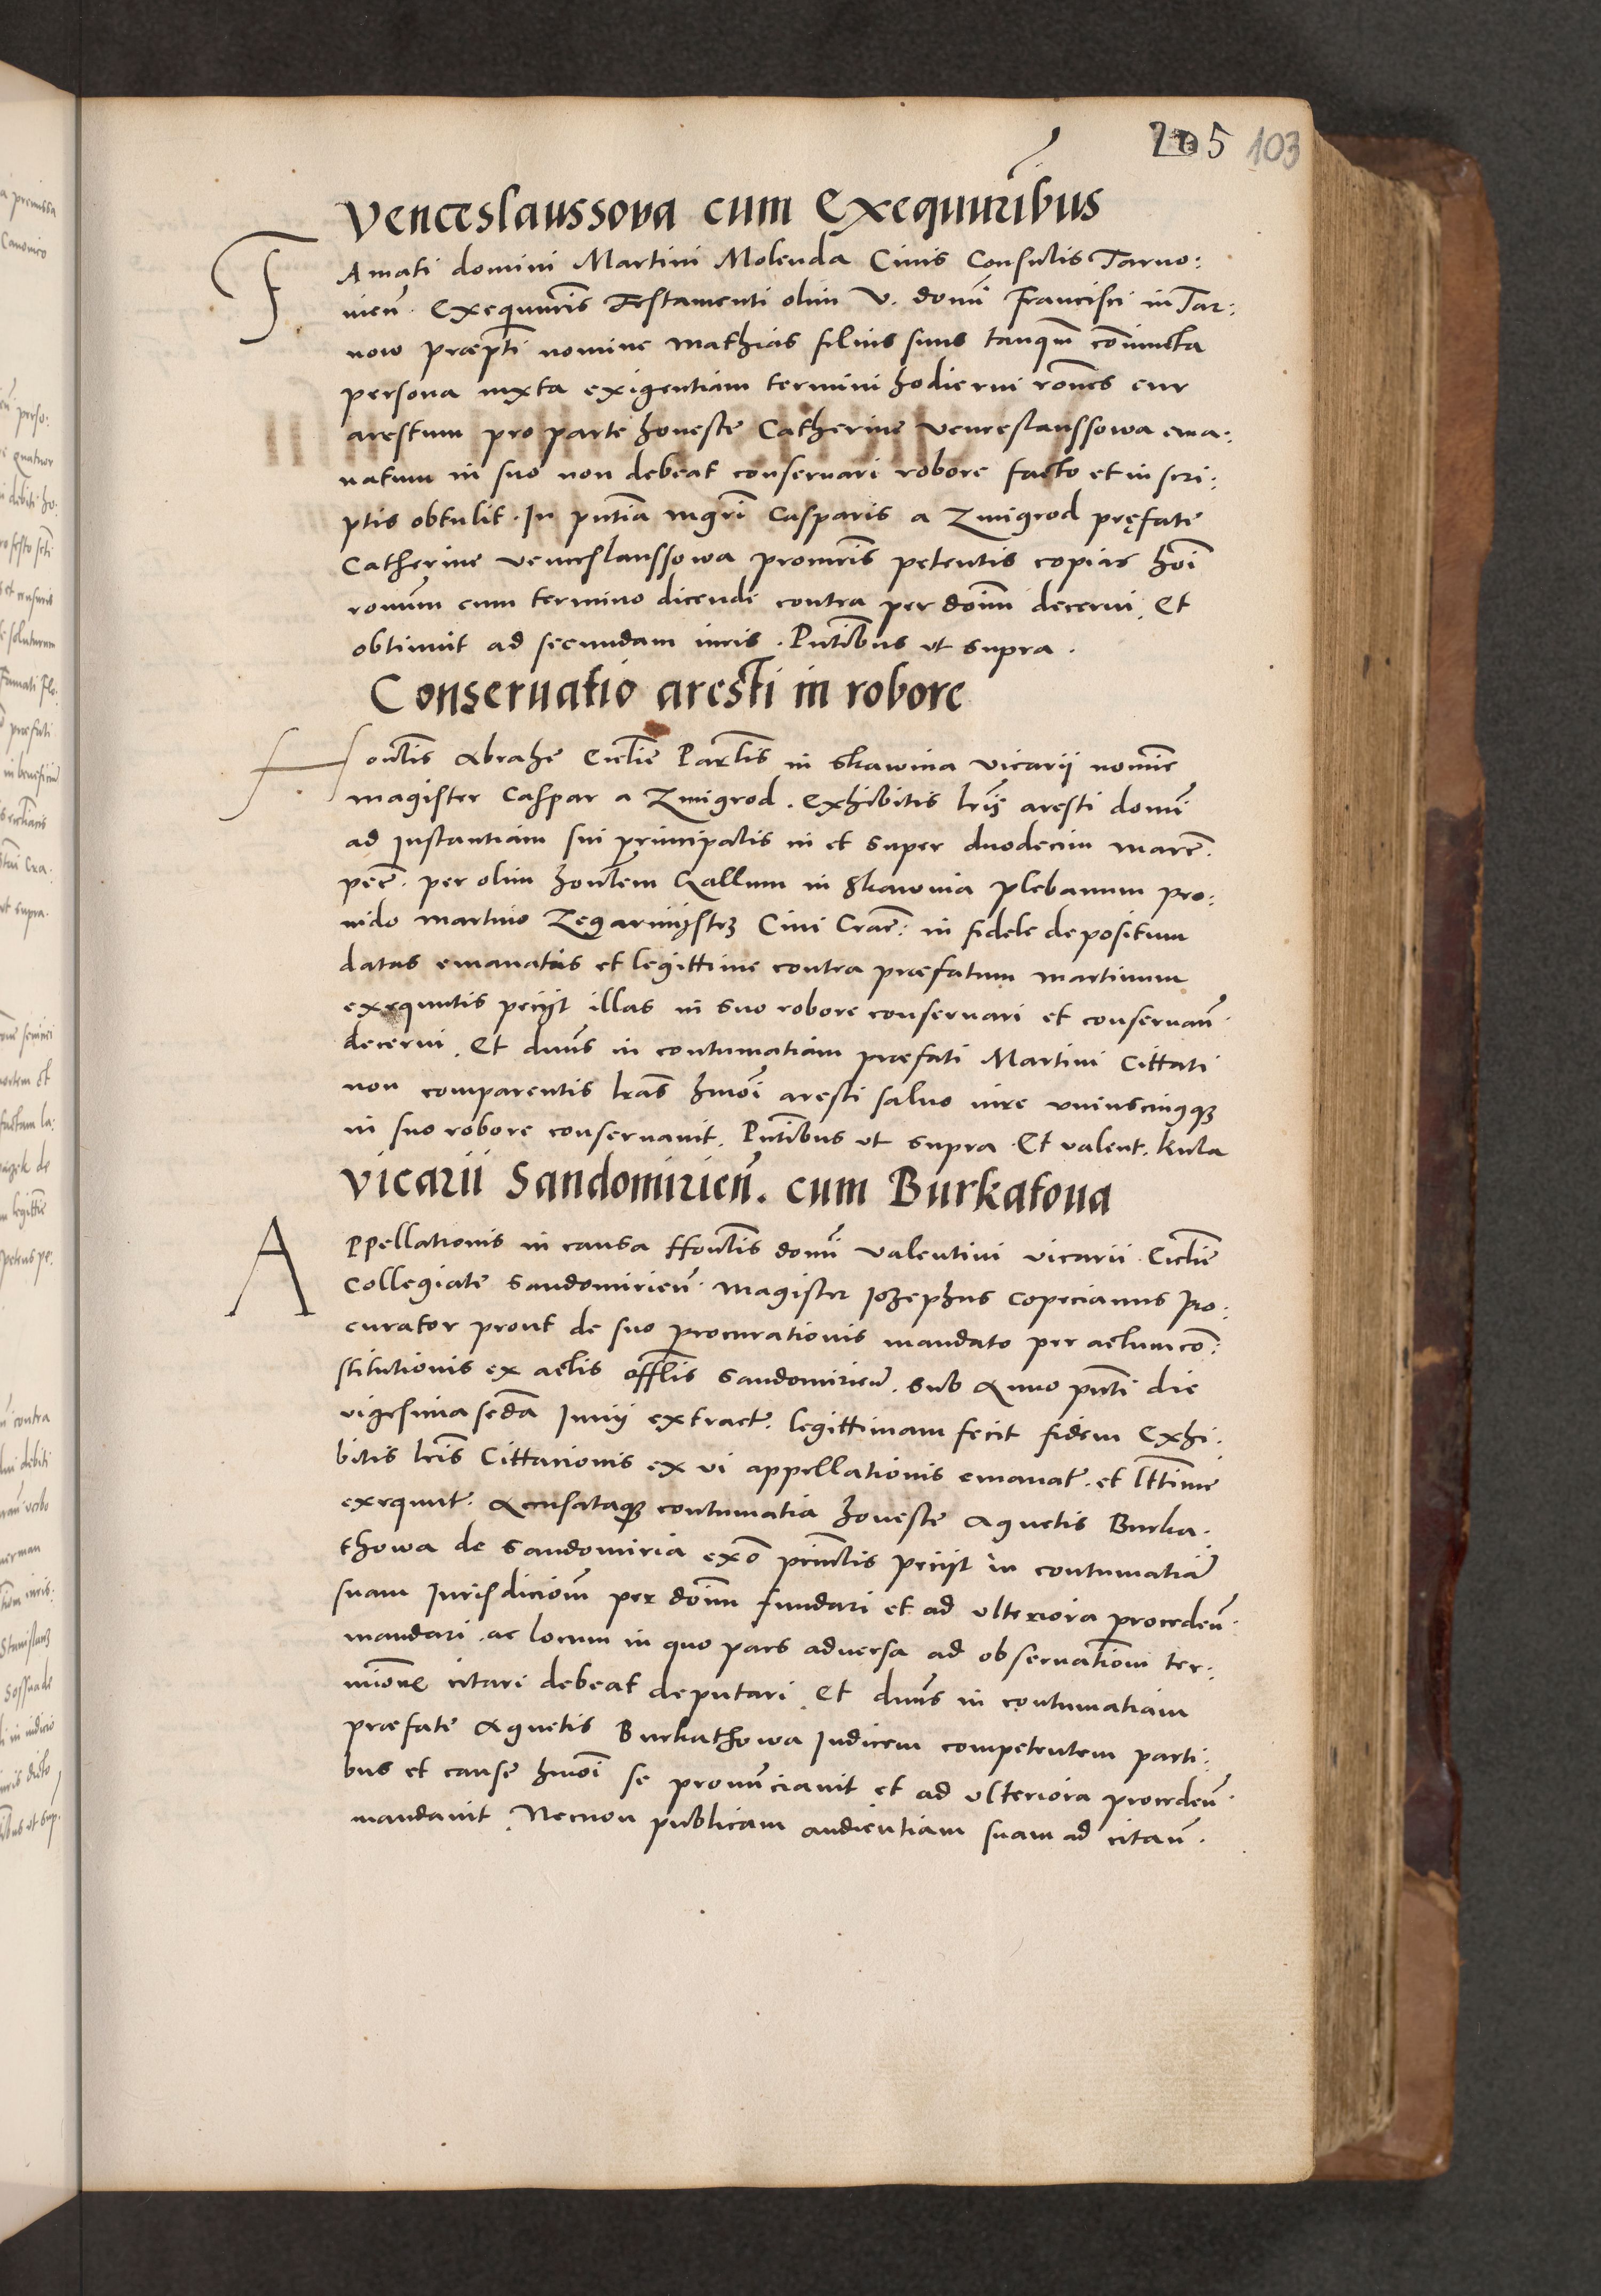 205 103
Venceslaussova cum Exequutoribus
FAmati domini Martini Molenda Civis Consulis Tarno:
vien. Exequutoris Testamenti olim V. domi Francisci in Tar:
now præpti nomine Mathias filius suus tanqm coniuncta
persona iuxta exigentiam termini hodierni rones cur
arestum pro parte honeste Catherine Venceslaussowa ema:
natum in suo non debeat conservari robore facto et in scri:
ptis obtulit. In pntia mgri Casparis a Zmigrod pręfate
Catherine Venceslaussowa procuris petentis copias hoi
ronum cum termino dicendi contra per doim decerni. Et
obtinuit ad secundam iuris. Pntibus ut supra.
Conservatio aresti in robore
Honlis Abrahe Ecclie Parlis in Skawina vicarii nomine
magister Caspar a Zmigrod. Exhibitis lris aresti domi
ad instantiam sui principalis in et super duodecim marc.
pec. per olim honlem Gallum in Skawina plebanum pro:
vido Martino Zegarmystrz Civi Crac: in fidele depositum
datas emanatis et legittime contra præfatum Martinum
exequutis peciit illas in suo robore conservari et conservan.
decerni. Et dnus in contumatiam præfati Martini Cittati
non comparentis lras hmoi aresti salvo iure uniuscuiusque
in suo robore conservavit. Pntibus ut supra Et valent. Kula
Vicarii Sandomirien. cum Burkatova
APpellationis in causa Honlis domi Valentini vicarii Ecclie
Collegiate Sandomirien. Magister Iozephus Copecianus pro:
curator prout de suo procurationis mandato per actum con:
stitutionis ex actis offlis Sandomirien. sub Anno pnti die
vigesima secda Iunij extract. legittimam fecit fidem Exhi:
bitis lris Cittacionis ex vi appellationis emanat. et lttime
exequut. Acusataque contumatia honeste Agnetis Burka:
thowa de Sandomiria exo prinlis peciit in contumatia
suam Iurisdiciom per doim fundari et ad ulteriora proceden.
mandari. ac locum in quo pars adversa ad observationem ter:
minorum citari debeat deputari. Et dnus in contumatiam
præfate Agnetis Burkathowa Iudicem competentem parti:
bus et cause hmoi se pronunciavit et ad ulteriora proceden.
mandavit. Necnon publicam audientiam suam ad citan.